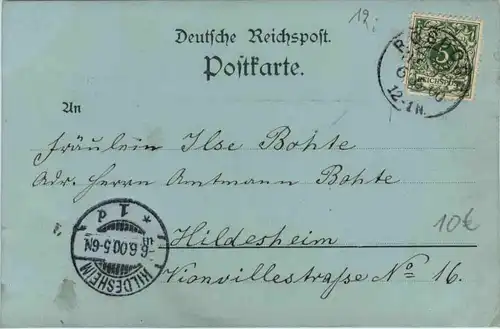 12.
Deutsche Reichspost.
Postkarte.
An
Fräulein Ilse Bohte
Adr. Herrn Amtmann Bohte
Hildesheim
Vionvillestraße No 16.
10€
5
12-1N.
HILDESHEIM
6.6.00.5-6N.
* 1 d